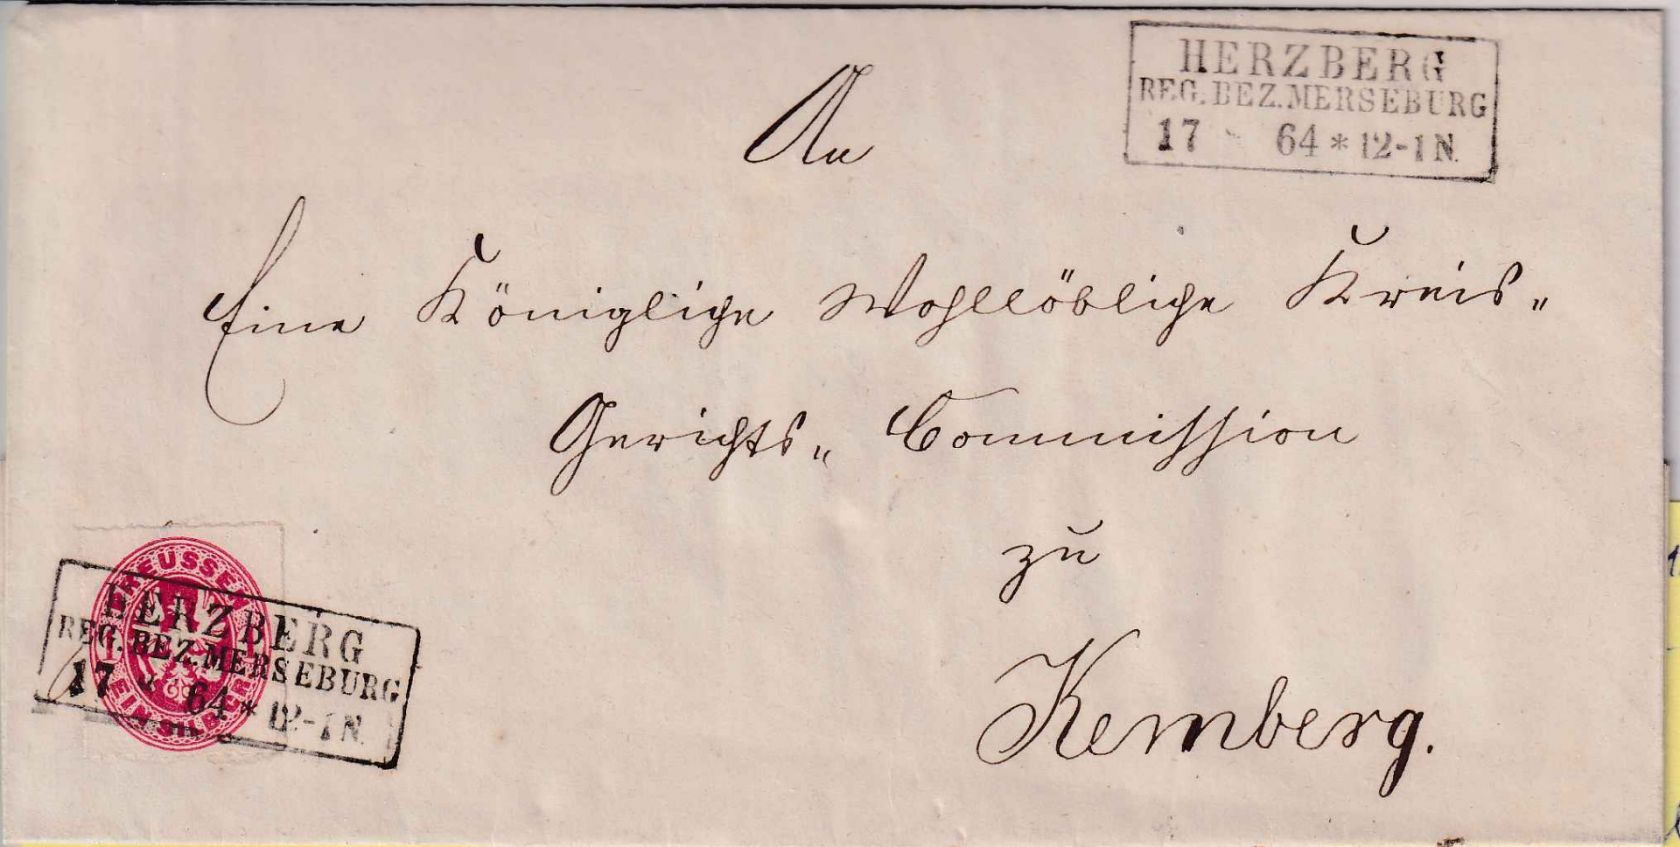 HERZBERG
REG. BEZ. MERSEBURG
17 64 * 12-1 N.
An
Eine Königliche Wohllöbliche Kreis„
Gerichts„ Commission
zu
Kemberg.
PREUSSEN
EIN SILB. GR.
HERZBERG
REG. BEZ. MERSEBURG
17 64 * 12-1 N.